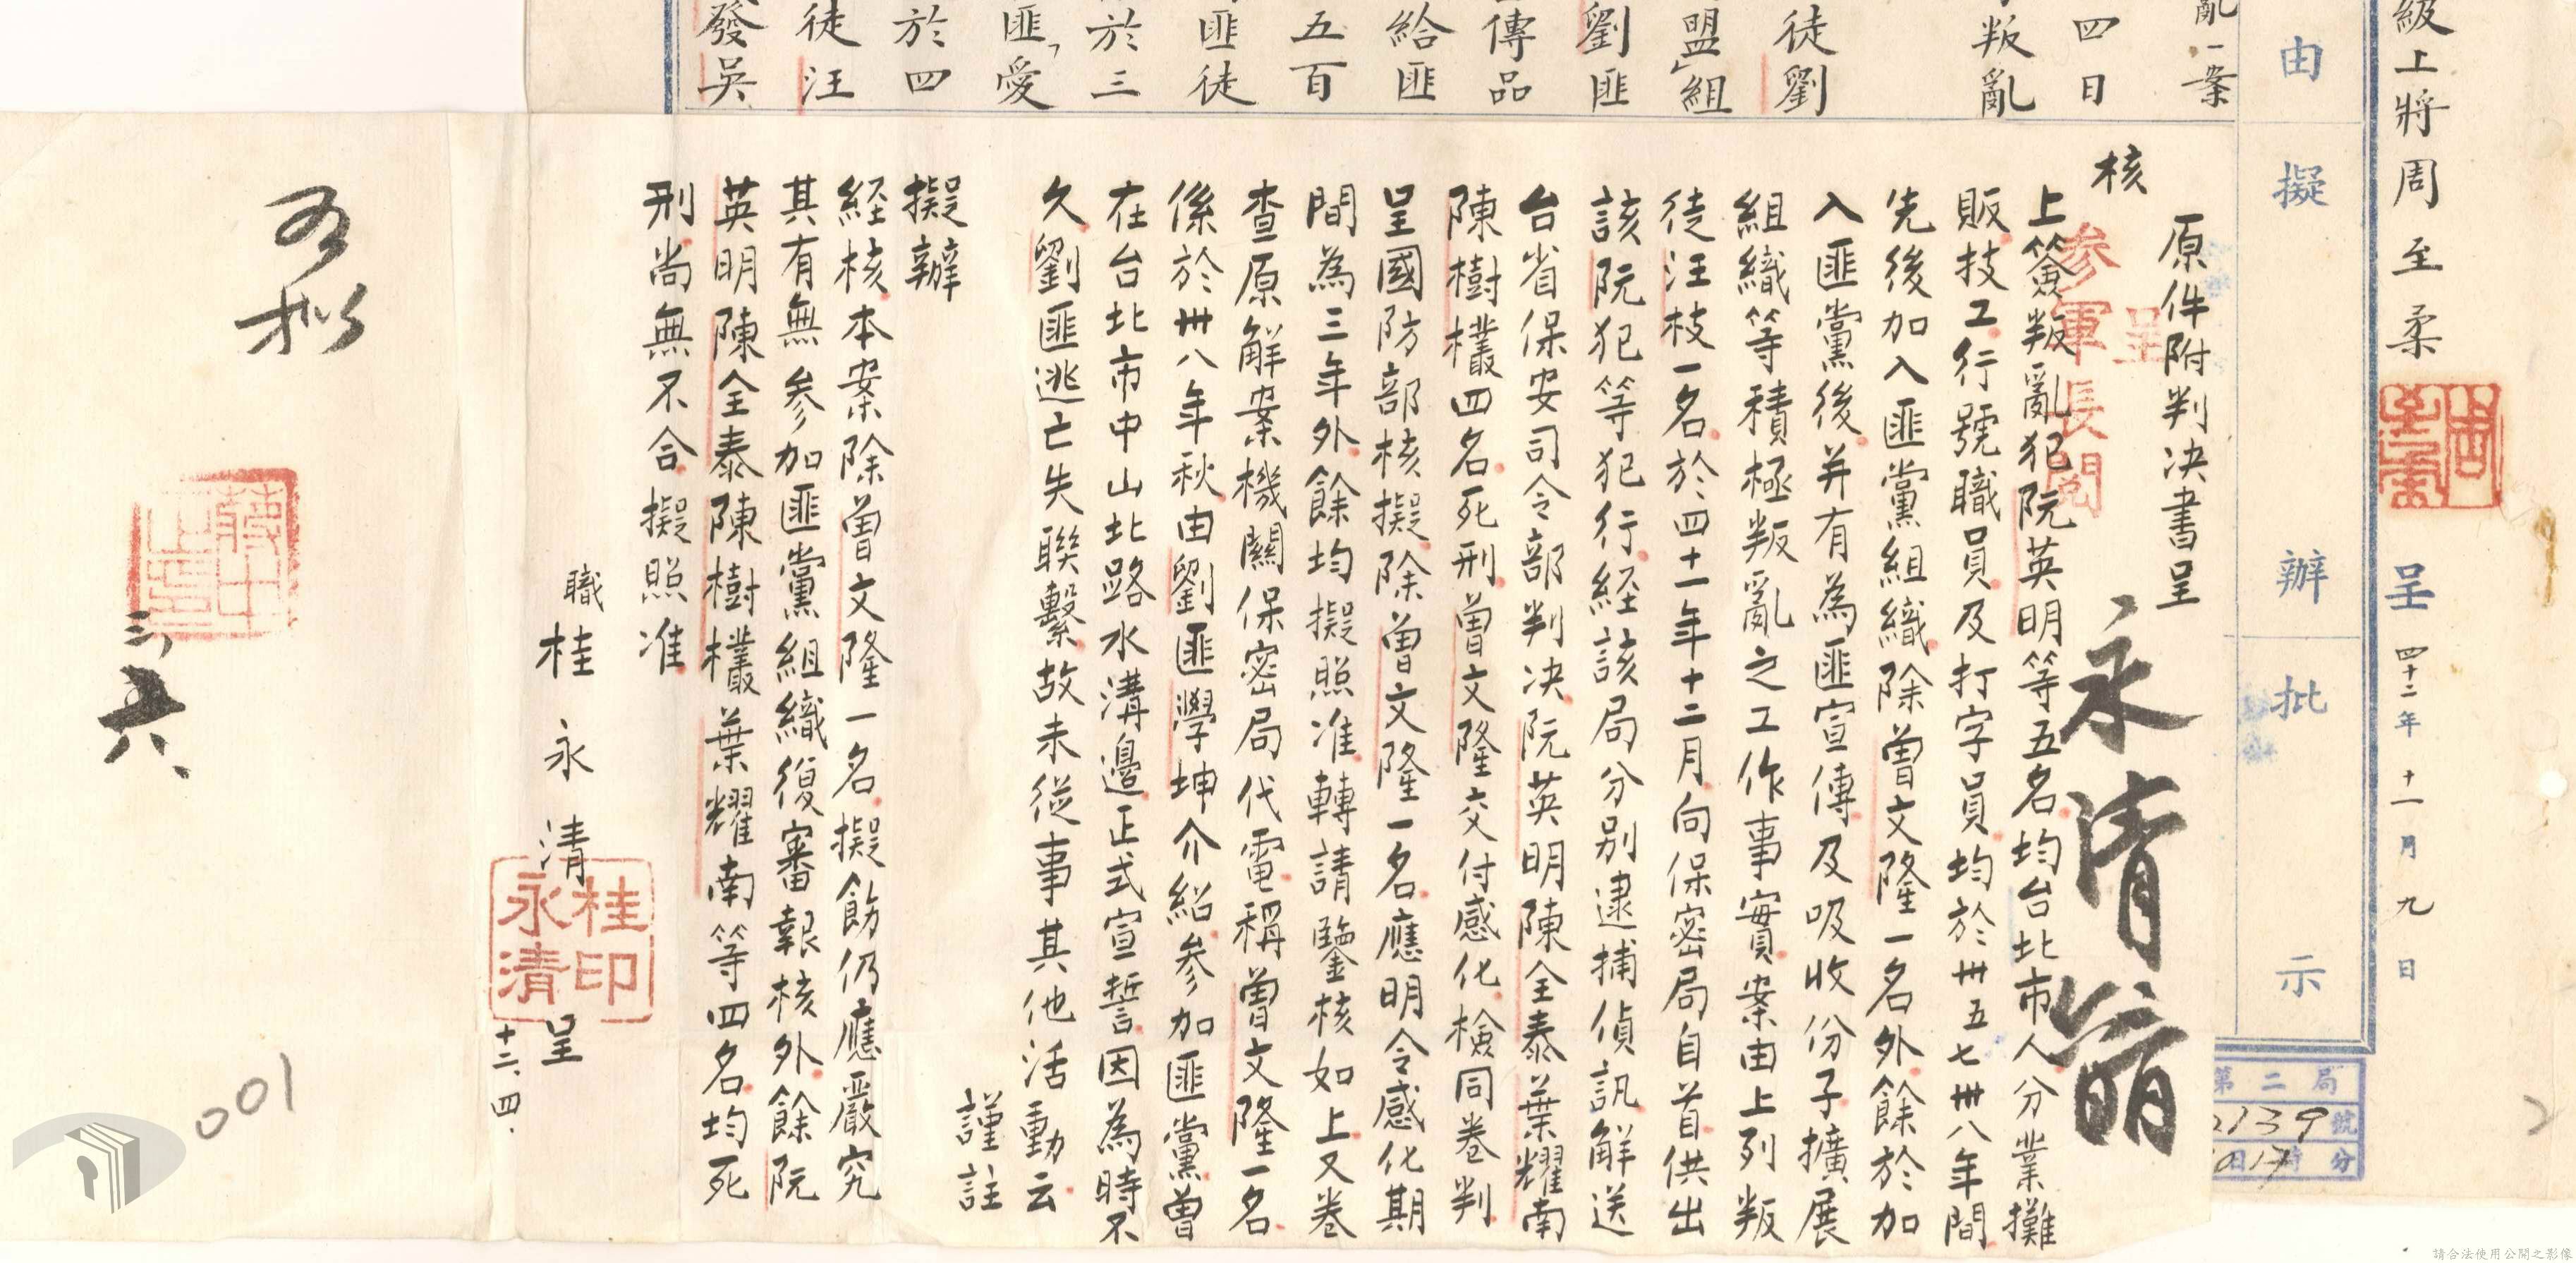 級上將周至柔
呈
四十二年十一月九日
由擬辦批示
亂一案
四日
叛亂
徒劉
盟」組
劉匪
傳品
給匪
五百
匪徒
於三
匪「愛
於四
徒汪
發吳
第二局
2139號
日時分
原件附判決書呈
核
呈
參軍長閱
永清
上簽叛亂犯阮英明等五名均台北市人分業攤
販技工行號職員及打字員均於卅五七卅八年間
先後加入匪黨組織除曾文隆一名外餘於加
入匪黨後并有為匪宣傳及吸收份子擴展
組織等積極叛亂之工作事實案由上列叛
徒汪枝一名於四十一年十二月向保密局自首供出
該阮犯等犯行經該局分別逮捕偵訊解送
台省保安司令部判決阮英明陳全泰葉耀南
陳樹欉四名死刑曾文隆交付感化檢同卷判
呈國防部核擬除曾文隆一名應明令感化期
間為三年外餘均擬照准轉請鑒核如上又卷
查原解案機關保密局代電稱曾文隆一名
係於卅八年秋由劉匪學坤介紹參加匪黨曾
在台北市中山北路水溝邊正式宣誓因為時不
久劉匪逃亡失聯繫故未從事其他活動云
謹註
擬辦
經核本案除曾文隆一名擬飭仍應嚴究
其有無參加匪黨組織復審報核外餘阮
英明陳全泰陳樹欉葉耀南等四名均死
刑尚無不合擬照准
職桂永清呈
桂永清印
十二、四.
如擬
蔣中正印
六、
001
請合法使用公開之影像